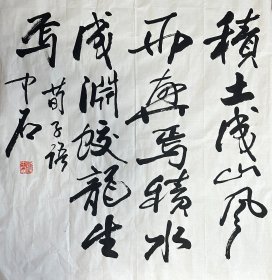 積土成山風
雨興焉積水
成淵蛟龍生
焉 荀子語
中石